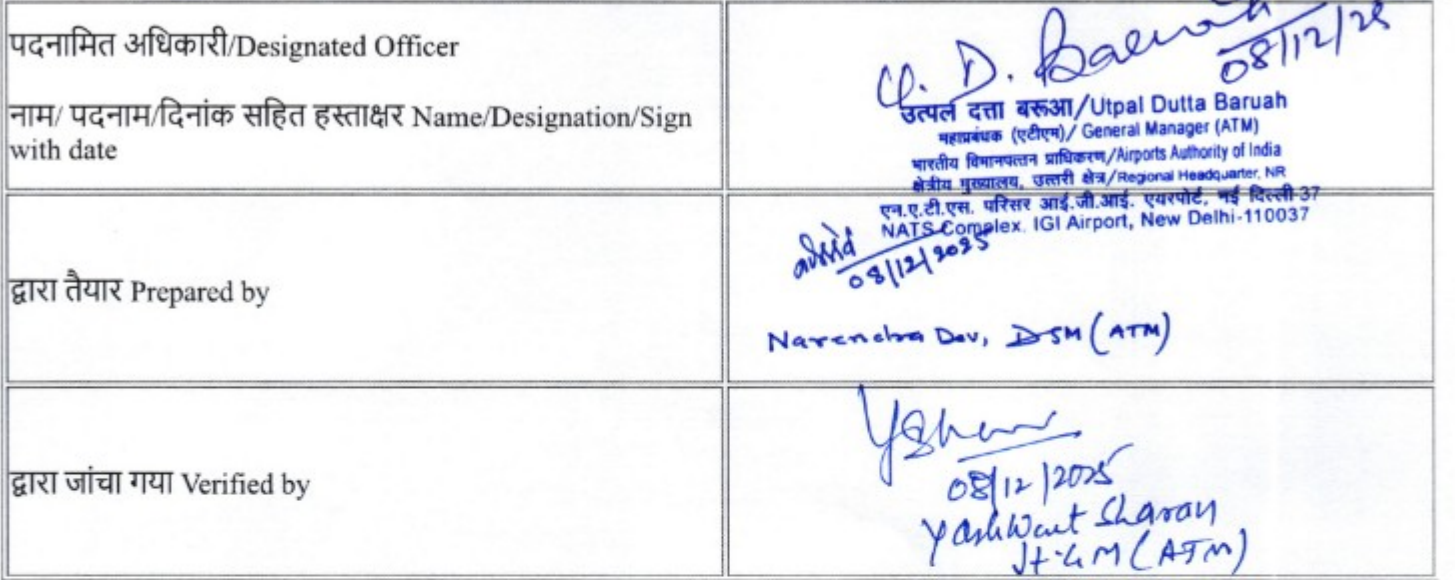 पदनामित अधिकारी/Designated Officer
नाम/ पदनाम/दिनांक सहित हस्ताक्षर Name/Designation/Sign
with date
U. D. Baruah
08/12/25
उत्पल दत्ता बरूआ/Utpal Dutta Baruah
महाप्रबंधक (एटीएम)/ General Manager (ATM)
भारतीय विमानपत्तन प्राधिकरण/Airports Authority of India
क्षेत्रीय मुख्यालय, उत्तरी क्षेत्र/Regional Headquarter, NR
एन.ए.टी.एस. परिसर आई.जी.आई. एयरपोर्ट, नई दिल्ली-37
NATS Complex, IGI Airport, New Delhi-110037
द्वारा तैयार Prepared by
08/12/2025
Narendra Dev, DSM (ATM)
द्वारा जांचा गया Verified by
08/12/2025
Yashwant Sharan
Jt. GM (ATM)